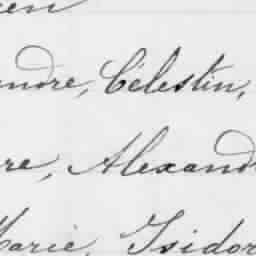 en
ndre, Célestin,
re, Alexand
Marie, Isidor